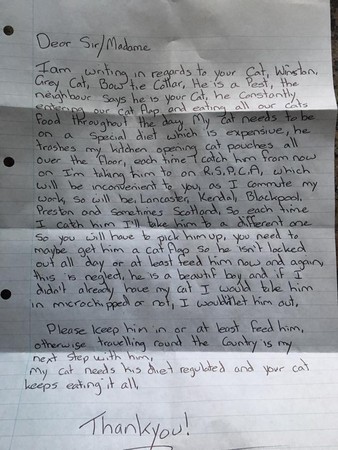 Dear Sir/Madame
I am writing in regards to your Cat, Winston,
Grey Cat, Bow tie Collar, He is a Pest, the
neighbour says he is your Cat, he Constantly
entering our Cat flap and eating all our Cats
food throughout the day, My Cat needs to be
on a special diet which is expensive, he
trashes my kitchen opening cat pouches all
over the floor, each time I catch him from now
on I'm taking him to an R.S.P.C.A, which
will be inconvenient to you, as I commute my
work, so will be, Lancaster, Kendal, Blackpool.
Preston and Sometimes Scotland, So each time
I catch him I'll take him to a different one
So you will have to pick him up, you need to
maybe get him a cat flap so he isn't locked
out all day or at least feed him now and again,
this is neglect, he is a beautiful boy and if I
didn't already have my cat I would take him
in microchipped or not, I wouldn't let him out,
Please keep him in or at least feed him,
otherwise travelling round the Country is my
next step with him,
My cat needs his diet regulated and your cat
keeps eating it all,
Thankyou!